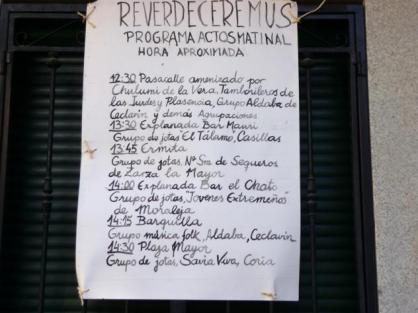 REVERDECEREMUS
PROGRAMA ACTOS MATINAL
HORA APROXIMADA
12:30 Pasacalle amenizado por
Chulumi de la Vera, Tamborileros de
las Jurdes y Plasencia, Grupo Aldaba de
Ceclavín y demás Agrupaciones
13:30 Explanada Bar Mauri
Grupo de jotas El Tálamo, Casillas
13:45 Ermita
Grupo de jotas, Nª Sra de Sequeros
de Zarza la Mayor
14:00 Explanada Bar el Chato
Grupo de jotas, "Jovenes Extremeños"
de Moraleja
14:15 Barquilla
Grupo música folk, Aldaba, Ceclavín
14:30 Plaza Mayor
Grupo de jotas, Savia Viva, Coria